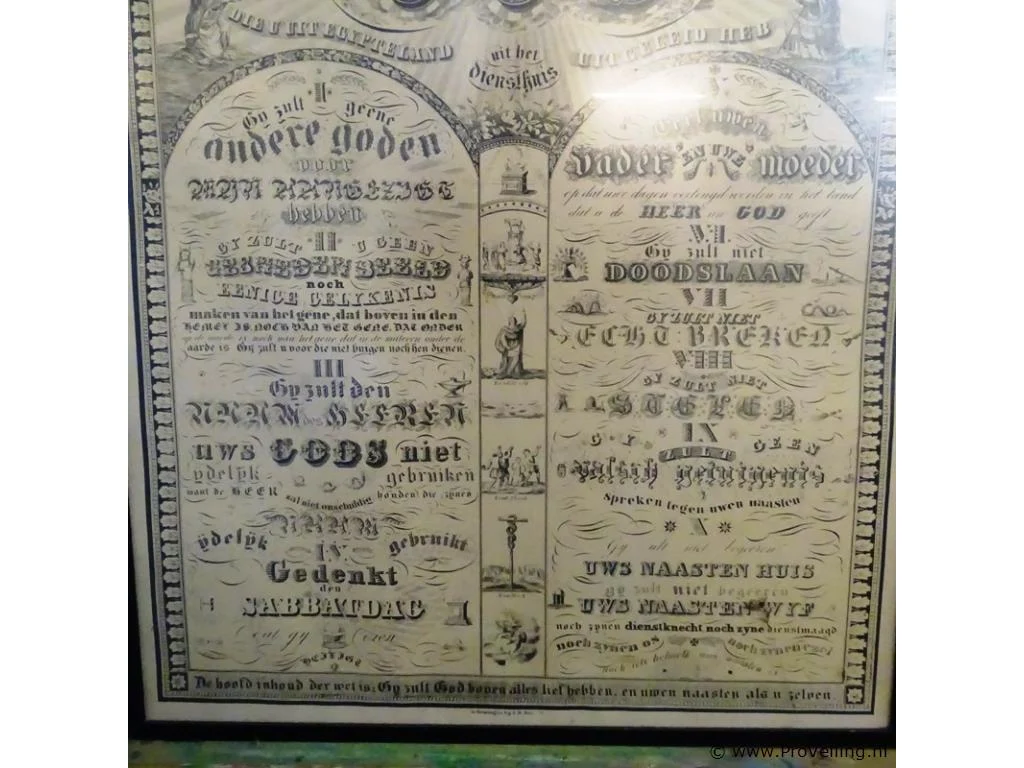 DIE U UIT EGYPTELAND
uit het
diensthuis
UITGELEID HEB
I
Gy zult geene
andere goden
voor
MYN AANGEZIGT
hebben
II
GY ZULT U GEEN
GESNEDEN BEELD
noch
EENIGE GELYKENIS
maken van het gene, dat boven in den
HEMEL IS NOCH VAN HET GENE, DAT ONDER
op de aarde is noch van het gene dat in de wateren onder de
aarde is Gy zult u voor die niet buigen noch hen dienen.
III
Gy zult den
NAAM des HEEREN
uws GODS niet
ydelyk gebruiken
want de HEER zal niet onschuldig houden die zynen
NAAM
ydelyk gebruikt
IV
Gedenkt
den
SABBATDAG
dat gy
HEILIGE
V
Eert uwen
Vader EN UWE moeder
op dat uwe dagen verlengd worden in het land
dat u de HEER uw GOD geeft
VI.
Gy zult niet
DOODSLAAN
VII
GY ZULT NIET
ECHT BREKEN
VIII
GY ZULT NIET
STELEN
IX
GY ZULT GEEN
valsch getuigenis
spreken tegen uwen naasten
X
Gy zult niet begeeren
UWS NAASTEN HUIS
gy zult niet begeeren
UWS NAASTEN WYF
noch zynen dienstknecht noch zyne dienstmaagd
noch zynen os noch zynen ezel
noch iets
De hoofd inhoud der wet is; Gy zult God boven alles lief hebben, en uwen naasten als u zelven.
© www.Proveiling.nl